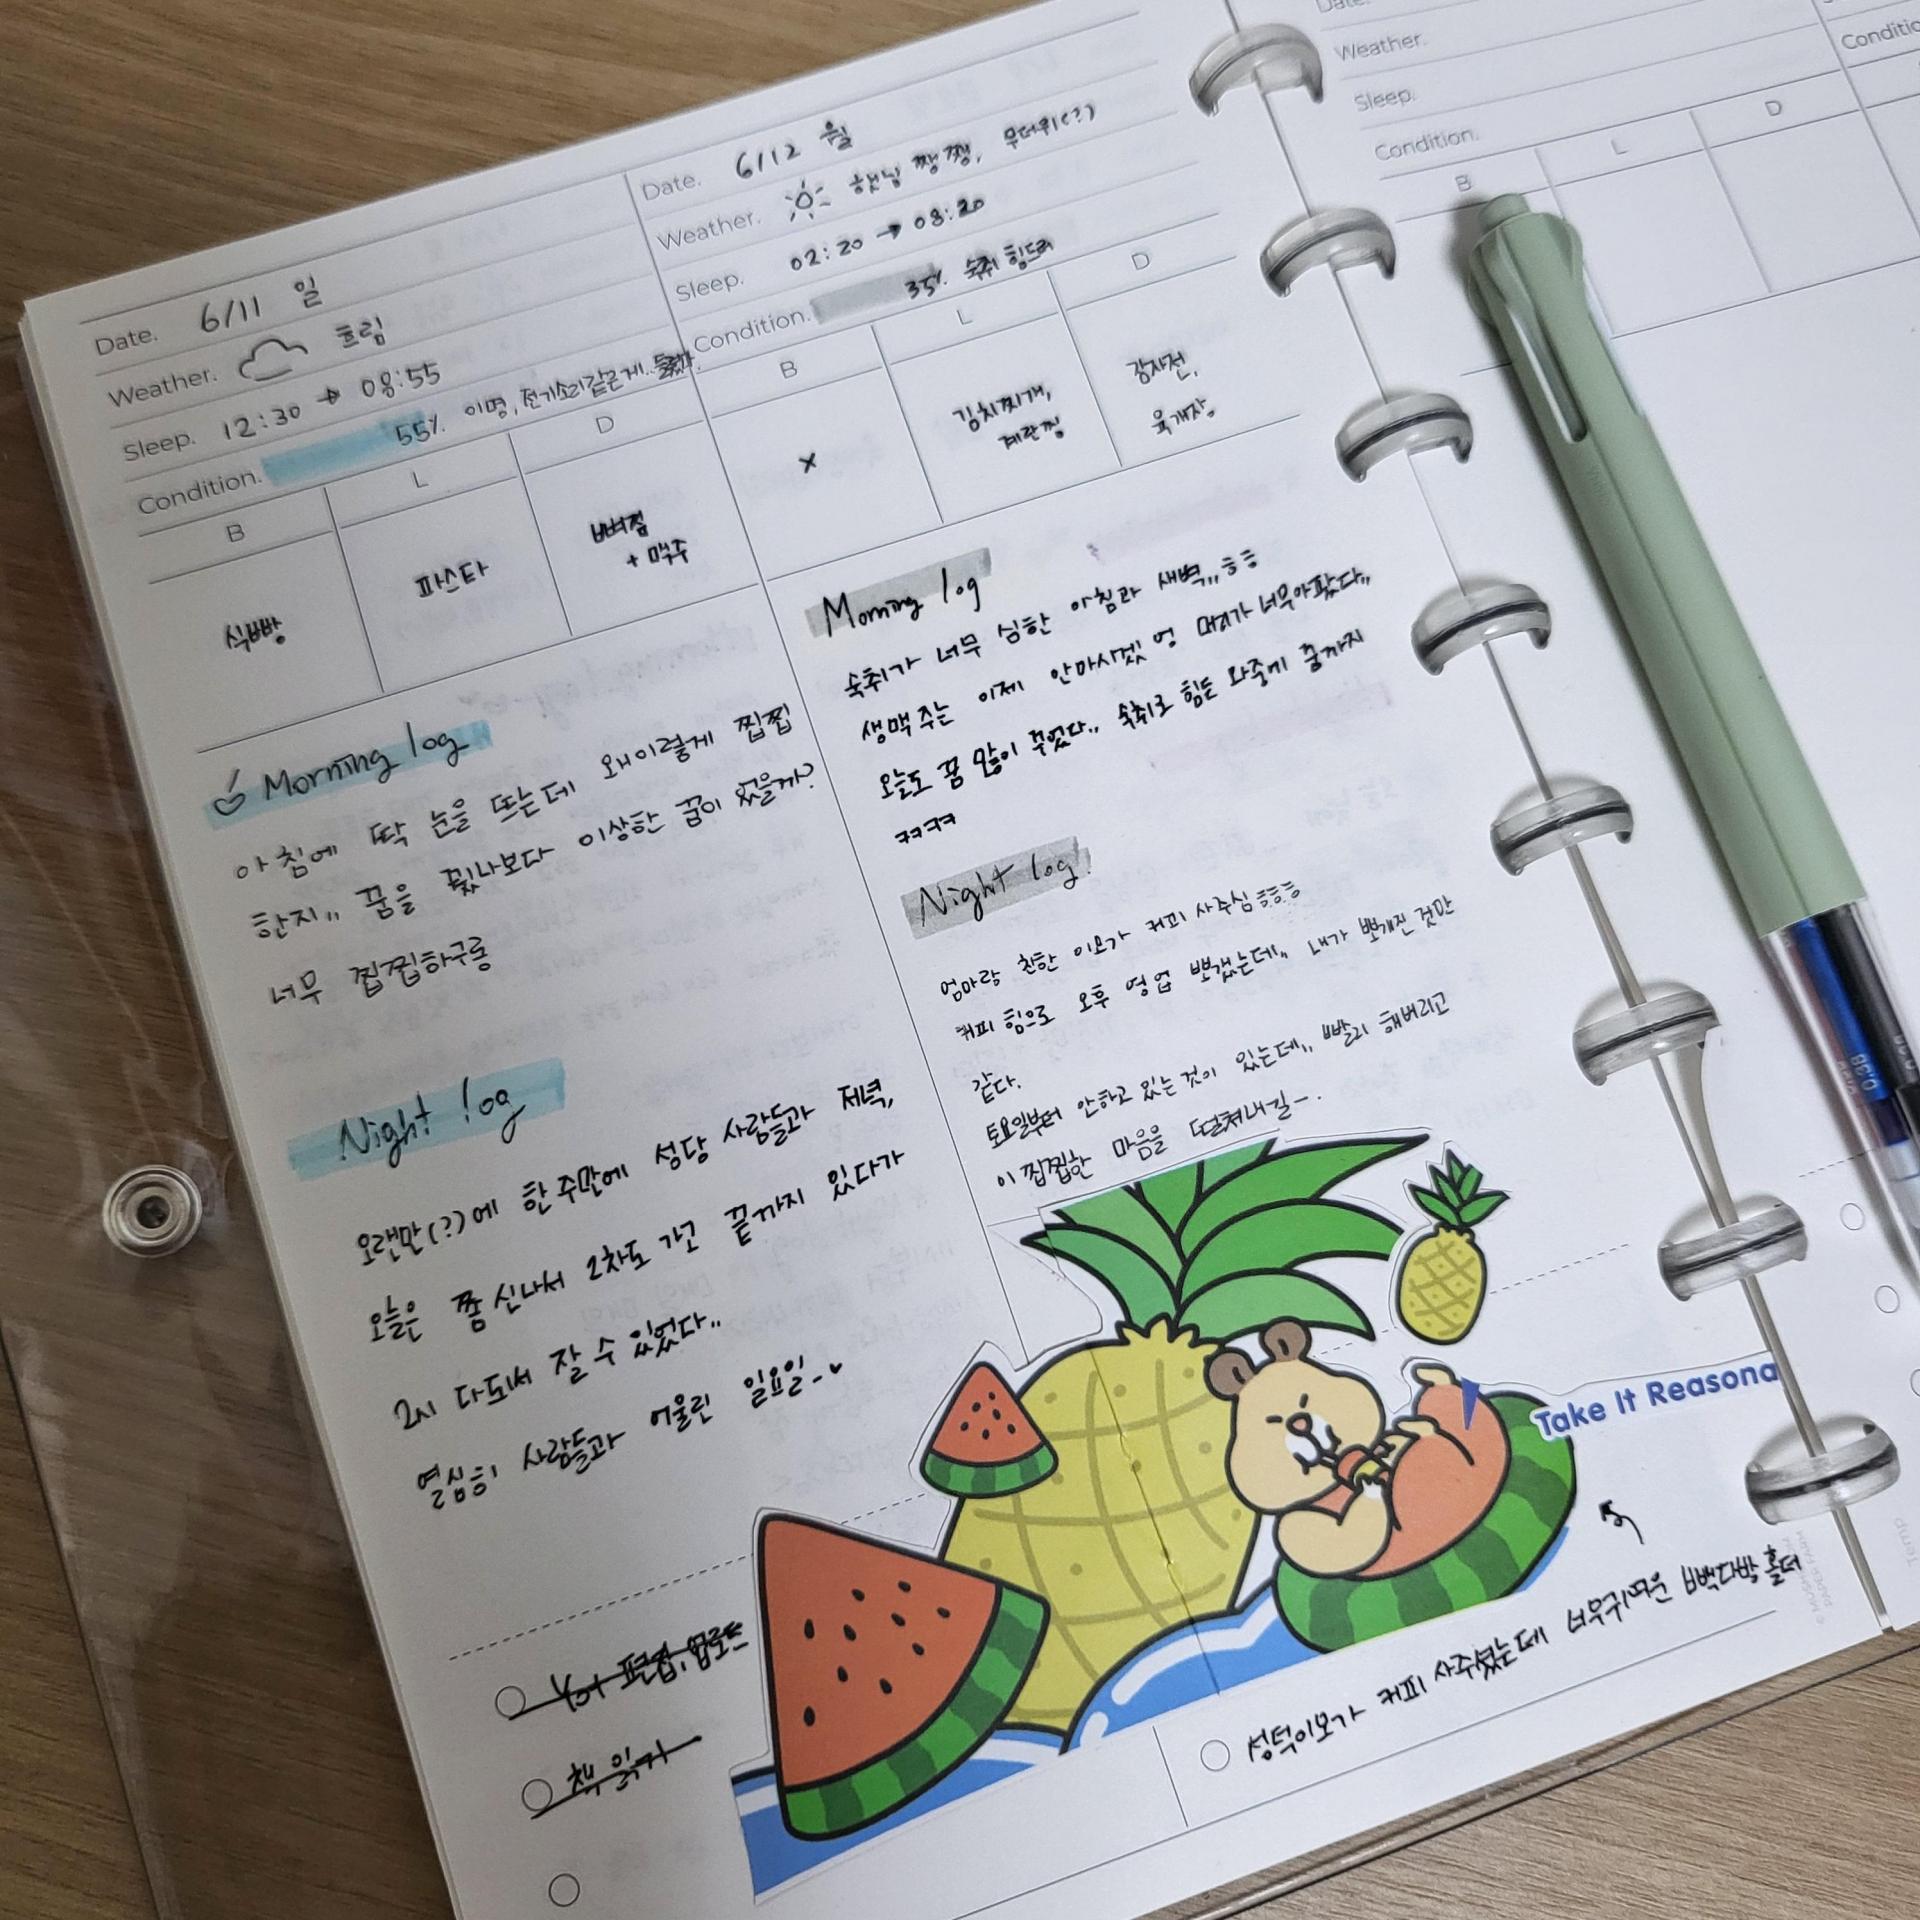 Date. 6/11 일
Weather. 흐림
Sleep. 12:30 → 08:55
Condition. 55% 이명, 전기소리같은게..
B L D
식빵
파스타
뼈찜
+ 맥주
Morning log
아침에 딱 눈을 뜨는데 왜이렇게 찝찝
한지,, 꿈을 꿨나보다 이상한 꿈이 었을까?
너무 찝찝하구롱
Night log
오랜만(?)에 한주만에 성당 사람들과 저녁,
오늘은 쫌 신나서 2차도 가고 끝까지 있다가
2시 다되서 잘 수 있었다..
열심히 사람들과 어울린 일요일-
편집, 업로드
책 읽기
Date. 6/12 월
Weather. 햇님 쨍쨍, 무더위(?)
Sleep. 02:20 → 08:20
Condition. 35% 숙취 힘드러
B L D
X
김치찌개,
계란찜
감자전,
육개장
Morning log
숙취가 너무 심한 아침과 새벽,,ㅎㅎ
생맥주는 이제 안마시겠 엉 머리가 너무아팠다,,
오늘도 꿈 많이 꾸었다,, 숙취로 힘든 와중에 꿈까지
ㅋㅋㅋㅋ
Night log.
엄마랑 친한 이모가 커피 사주심 ㅎㅎㅎ
커피 힘으로 오후 영업 뽀갰는데,, 내가 뽀개진 것만
같다.
토요일부터 안하고 있는것이 있는데,, 빨리 해버리고
이 찝찝한 마음을 떨쳐내길-.
Take It Reasona
너무귀여운 빽다방 홀더
성덕이모가 커피 사주셨는데
Date.
Weather.
Sleep.
Condition.
B L D
Condition
Temp
0.38